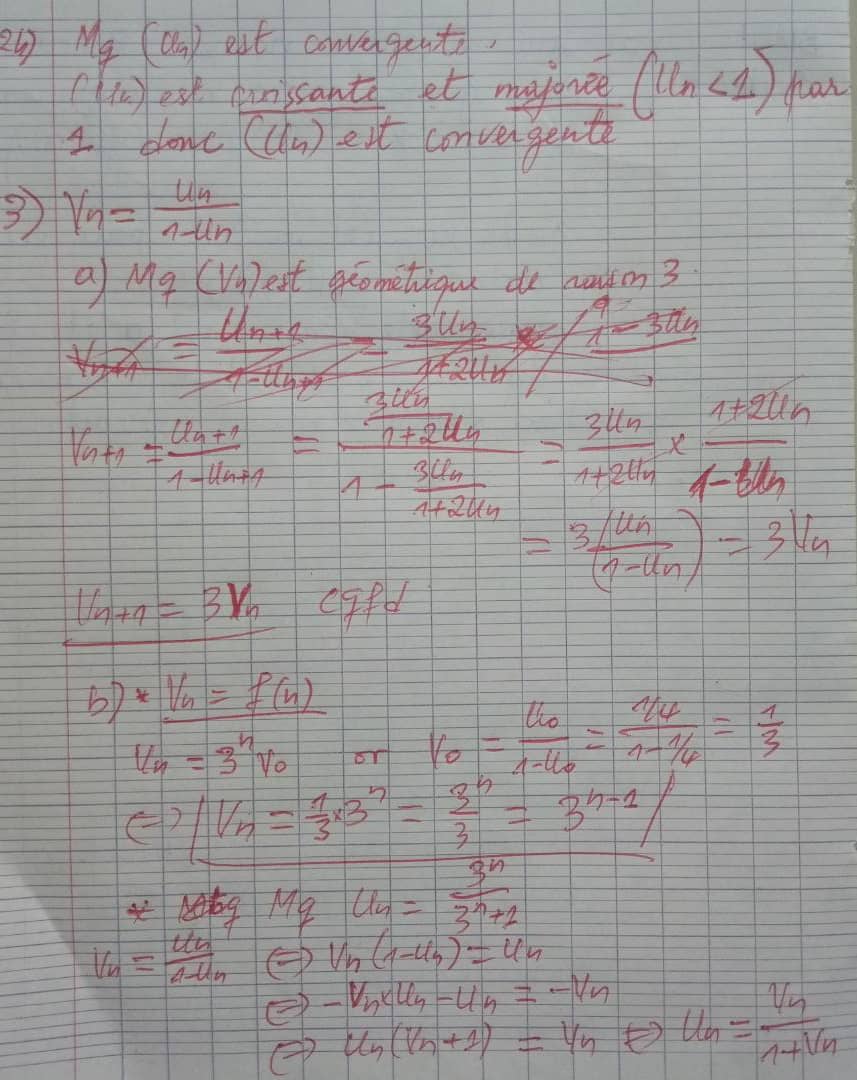 24) Mq (Un) est convergente.
(Un) est croissante et majorée (Un < 1) par
1 donc (Un) est convergente
3) Vn = Un / (1-Un)
a) Mq (Vn) est géométrique de raison 3.
Vn+1 = Un+1 / (1-Un+1) = 3Un / (1+2Un)
Vn+1 = Un+1 / (1-Un+1) = (3Un / (1+2Un)) / (1 - 3Un / (1+2Un)) = 3Un / (1+2Un) × (1+2Un) / (1-Un)
= 3 (Un / (1-Un)) = 3Vn
Vn+1 = 3Vn cqfd
b) * Vn = f(n)
Vn = 3^n V0 or V0 = U0 / (1-U0) = (1/4) / (1-1/4) = 1/3
⇔ Vn = 1/3 × 3^n = 3^n / 3 = 3^(n-1)
* Mq Un = 3^n / (3^n+1)
Vn = Un / (1-Un) ⇔ Vn (1-Un) = Un
⇔ -Vn×Un - Un = -Vn
⇔ Un (Vn+1) = Vn ⇔ Un = Vn / (1+Vn)